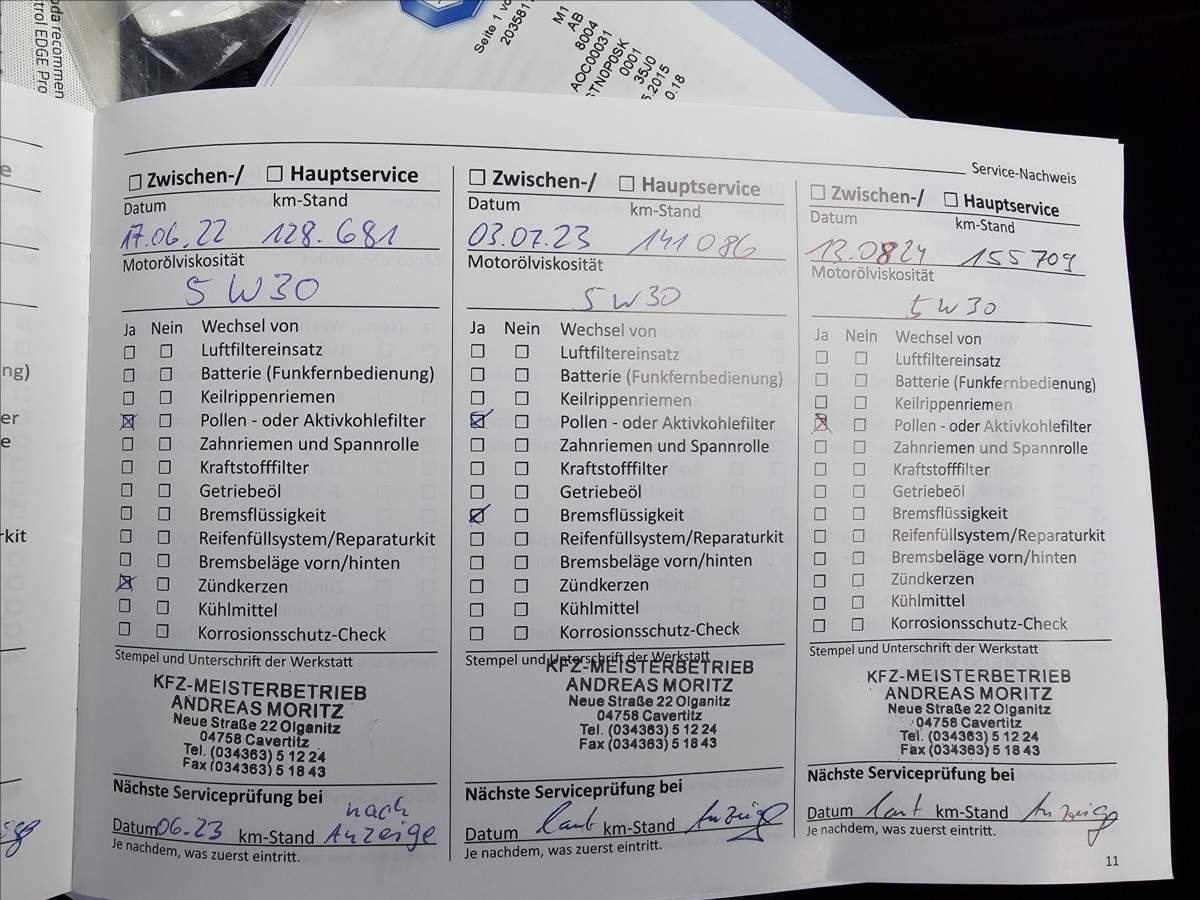 oda recommen
trol EDGE Pro
Seite 1 vo
203581
M1
AB
8004
AOC00031
STN0P0SK
0001
35J0
5.2015
0.18
e
ng)
er
e
rkit
Service-Nachweis
☐ Zwischen-/ ☐ Hauptservice
Datum km-Stand
17.06.22 128.681
Motorölviskosität
5W30
Ja Nein Wechsel von
☐ ☐ Luftfiltereinsatz
☐ ☐ Batterie (Funkfernbedienung)
☐ ☐ Keilrippenriemen
☒ ☐ Pollen - oder Aktivkohlefilter
☐ ☐ Zahnriemen und Spannrolle
☐ ☐ Kraftstofffilter
☐ ☐ Getriebeöl
☐ ☐ Bremsflüssigkeit
☐ ☐ Reifenfüllsystem/Reparaturkit
☐ ☐ Bremsbeläge vorn/hinten
☒ ☐ Zündkerzen
☐ ☐ Kühlmittel
☐ ☐ Korrosionsschutz-Check
Stempel und Unterschrift der Werkstatt
KFZ-MEISTERBETRIEB
ANDREAS MORITZ
Neue Straße 22 Olganitz
04758 Cavertitz
Tel. (034363) 5 12 24
Fax (034363) 5 18 43
Nächste Serviceprüfung bei
nach
Datum 06.23 km-Stand Anzeige
Je nachdem, was zuerst eintritt.
☐ Zwischen-/ ☐ Hauptservice
Datum km-Stand
03.07.23 141086
Motorölviskosität
5W30
Ja Nein Wechsel von
☐ ☐ Luftfiltereinsatz
☐ ☐ Batterie (Funkfernbedienung)
☐ ☐ Keilrippenriemen
☒ ☐ Pollen - oder Aktivkohlefilter
☐ ☐ Zahnriemen und Spannrolle
☐ ☐ Kraftstofffilter
☐ ☐ Getriebeöl
☒ ☐ Bremsflüssigkeit
☐ ☐ Reifenfüllsystem/Reparaturkit
☐ ☐ Bremsbeläge vorn/hinten
☐ ☐ Zündkerzen
☐ ☐ Kühlmittel
☐ ☐ Korrosionsschutz-Check
Stempel und Unterschrift der Werkstatt
KFZ-MEISTERBETRIEB
ANDREAS MORITZ
Neue Straße 22 Olganitz
04758 Cavertitz
Tel. (034363) 5 12 24
Fax (034363) 5 18 43
Nächste Serviceprüfung bei
Datum laut km-Stand Anzeige
Je nachdem, was zuerst eintritt.
☐ Zwischen-/ ☐ Hauptservice
Datum km-Stand
13.0824 155709
Motorölviskosität
5W30
Ja Nein Wechsel von
☐ ☐ Luftfiltereinsatz
☐ ☐ Batterie (Funkfernbedienung)
☐ ☐ Keilrippenriemen
☒ ☐ Pollen - oder Aktivkohlefilter
☐ ☐ Zahnriemen und Spannrolle
☐ ☐ Kraftstofffilter
☐ ☐ Getriebeöl
☐ ☐ Bremsflüssigkeit
☐ ☐ Reifenfüllsystem/Reparaturkit
☐ ☐ Bremsbeläge vorn/hinten
☐ ☐ Zündkerzen
☐ ☐ Kühlmittel
☐ ☐ Korrosionsschutz-Check
Stempel und Unterschrift der Werkstatt
KFZ-MEISTERBETRIEB
ANDREAS MORITZ
Neue Straße 22 Olganitz
04758 Cavertitz
Tel. (034363) 5 12 24
Fax (034363) 5 18 43
Nächste Serviceprüfung bei
Datum laut km-Stand Anzeige
Je nachdem, was zuerst eintritt.
11